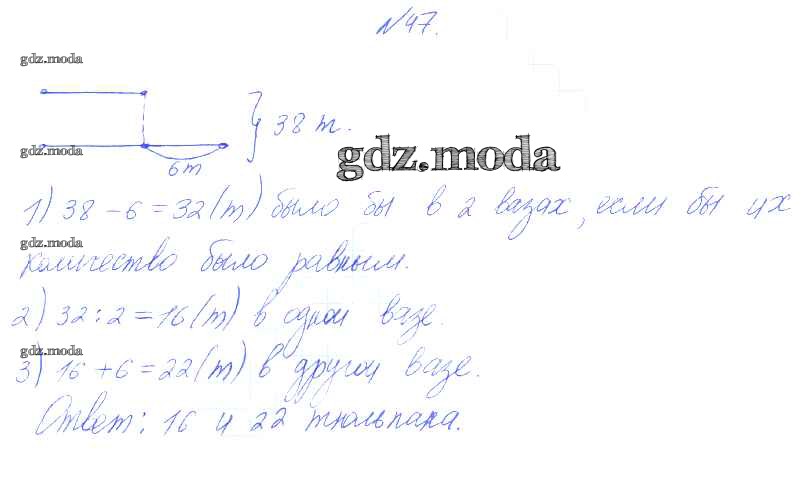 №47.
gdz.moda
38 т.
gdz.moda
gdz.moda
6т
1) 38 - 6 = 32 (т) было бы в 2 вазах, если бы их
gdz.moda
количество было равным.
2) 32 : 2 = 16 (т) в одной вазе.
gdz.moda
3) 16 + 6 = 22 (т) в другой вазе.
Ответ: 16 и 22 тюльпана.